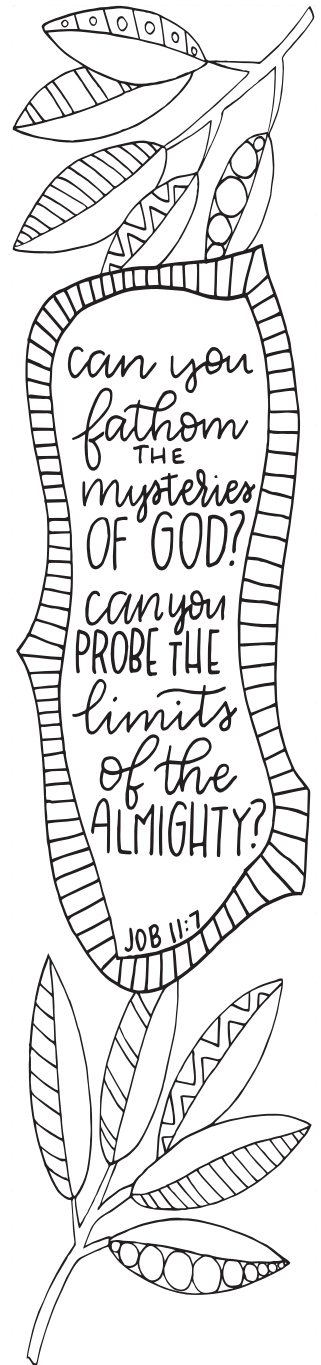 can you
fathom
THE
mysteries
OF GOD?
can you
PROBE THE
limits
of the
ALMIGHTY?
JOB 11:7